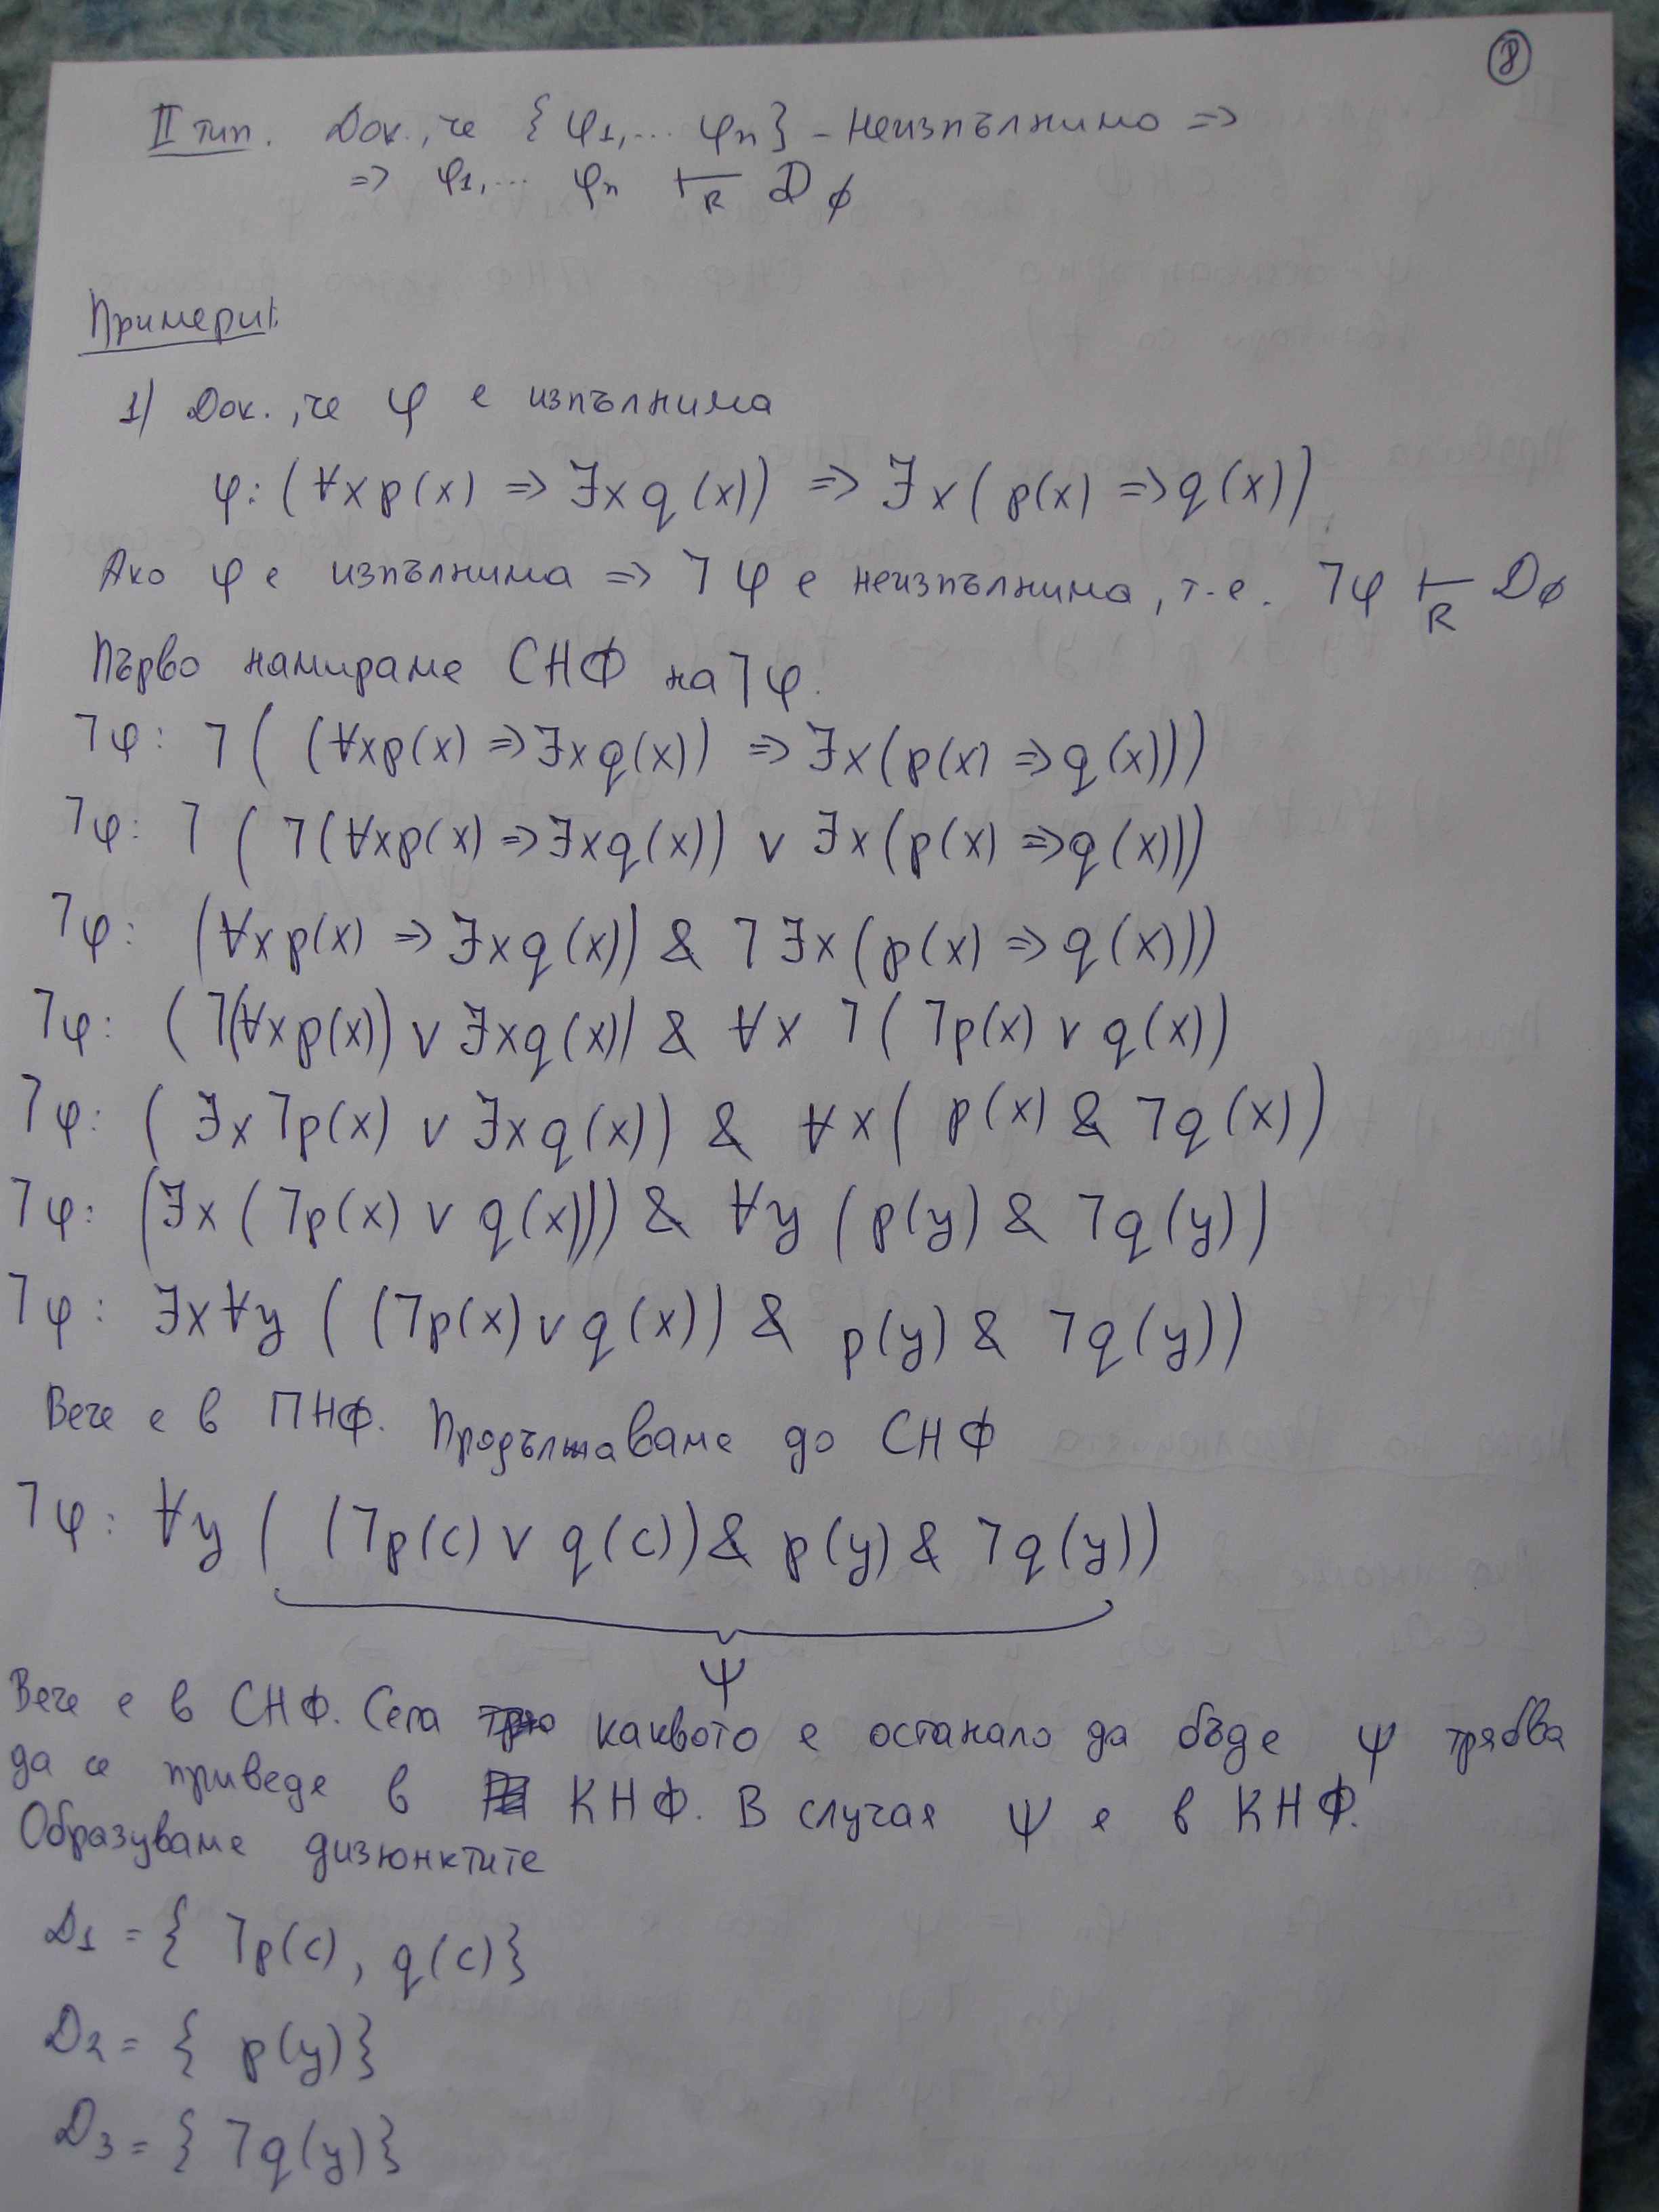 8
II тип. Док., че {φ1,... φn} - неизпълнимо =>
=> φ1,... φn ⊢R D∅
Примери:
1) Док., че φ е изпълнима
φ: (∀x p(x) => ∃x q(x)) => ∃x (p(x) => q(x))
Ако φ е изпълнима => ¬φ е неизпълнима, т.е. ¬φ ⊢R D∅
Първо намираме СНФ на ¬φ.
¬φ: ¬( (∀xp(x) => ∃xq(x)) => ∃x(p(x) => q(x)))
¬φ: ¬( ¬(∀xp(x) => ∃xq(x)) ∨ ∃x(p(x) => q(x)))
¬φ: (∀xp(x) => ∃xq(x)) & ¬∃x(p(x) => q(x)))
¬φ: (¬(∀xp(x)) ∨ ∃xq(x)) & ∀x ¬(¬p(x) ∨ q(x))
¬φ: (∃x¬p(x) ∨ ∃xq(x)) & ∀x( p(x) & ¬q(x))
¬φ: (∃x(¬p(x) ∨ q(x))) & ∀y (p(y) & ¬q(y))
¬φ: ∃x∀y ((¬p(x) ∨ q(x)) & p(y) & ¬q(y))
Вече е в ПНФ. Продължаваме до СНФ
¬φ: ∀y ( (¬p(c) ∨ q(c)) & p(y) & ¬q(y))
ψ
Вече е в СНФ. Сега каквото е останало да бъде ψ трябва
да се приведе в КНФ. В случая ψ е в КНФ.
Образуваме дизюнктите
D1 = { ¬p(c), q(c)}
D2 = { p(y)}
D3 = { ¬q(y)}